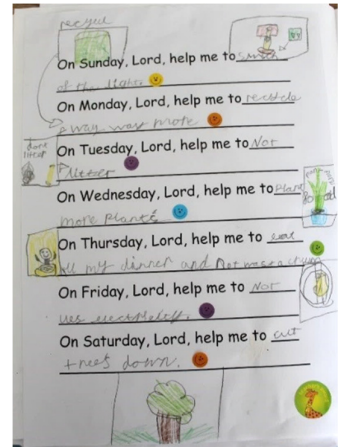 recycel
On Sunday, Lord, help me to switch
of the lights
On Monday, Lord, help me to recycle
a way way more
On Tuesday, Lord, help me to Not
litter
On Wednesday, Lord, help me to Plant
more plants
On Thursday, Lord, help me to eat
all my dinner and Not
On Friday, Lord, help me to Not
On Saturday, Lord, help me to cut
trees down.